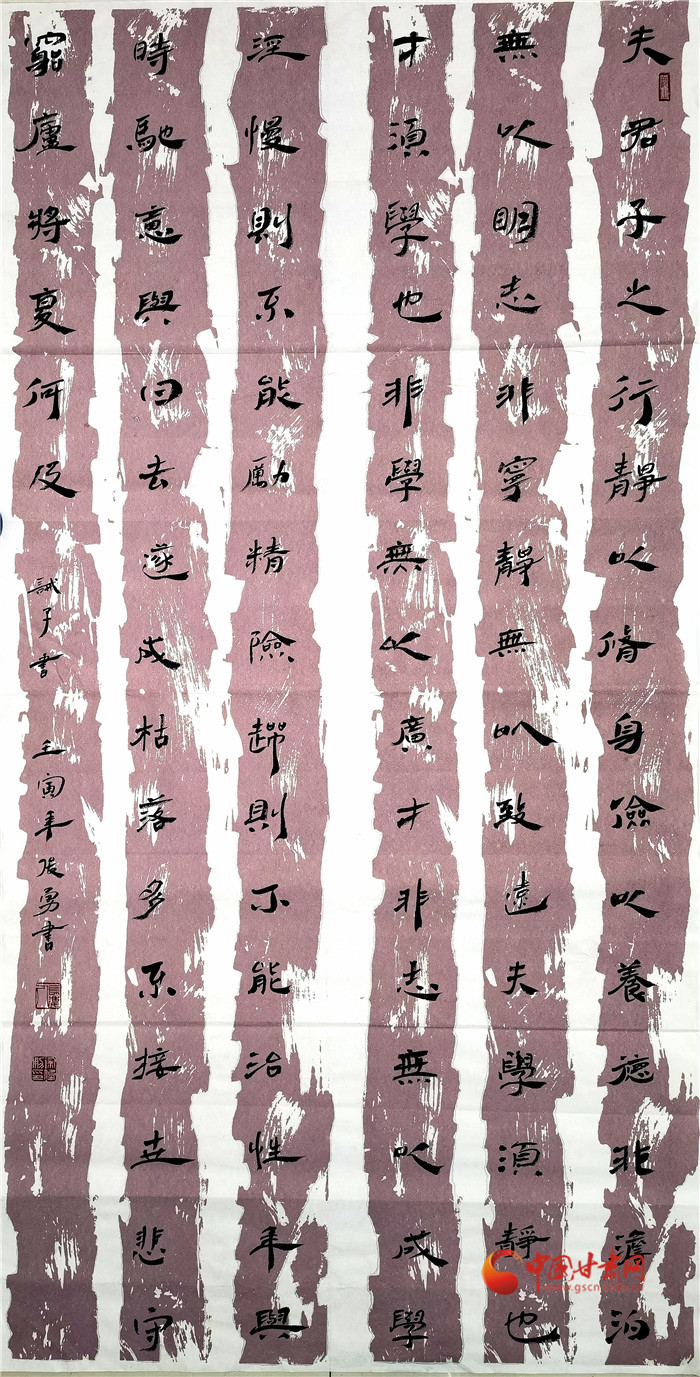 夫君子之行靜以脩身儉以養德非澹泊
無以明志非寧靜無以致遠夫學須靜也
才須學也非學無以廣才非志無以成學
淫慢則不能勵精險躁則不能治性年與
時馳意與日去遂成枯落多不接世悲守
窮廬將復何及
誡子書 壬寅年 俊勇書
中国甘肃网
www.gscn